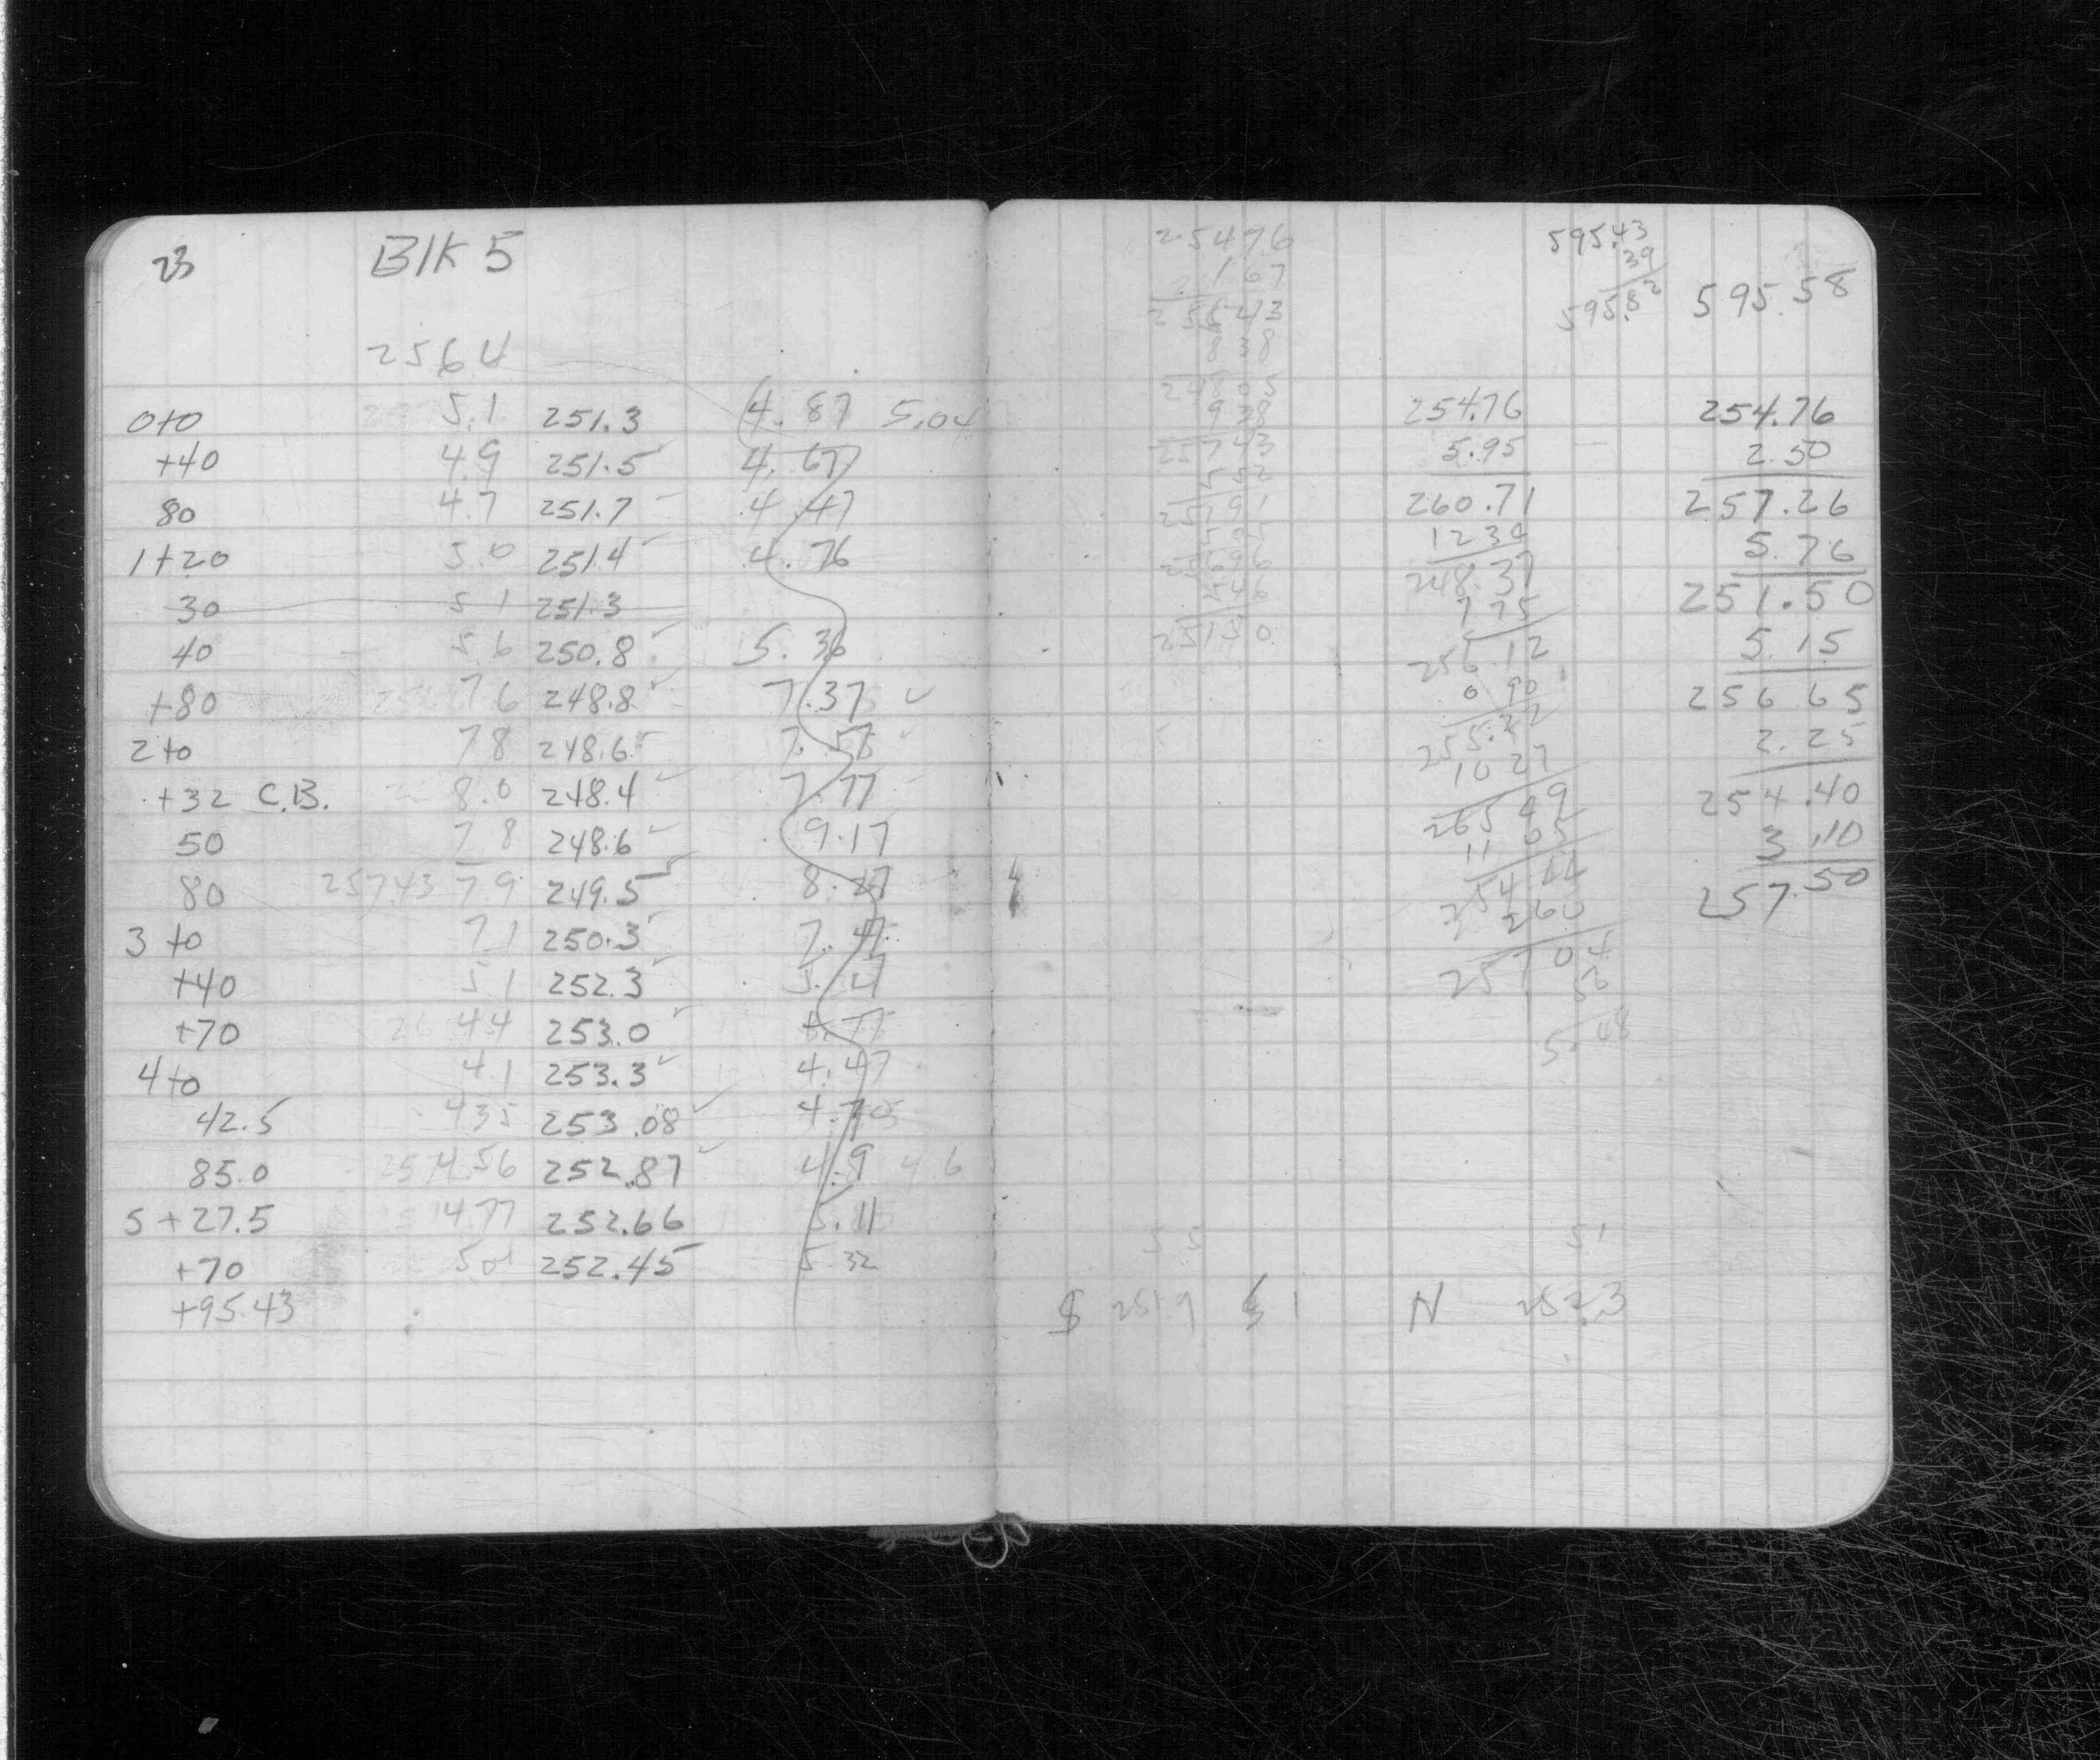 23 Blk 5
256.4
0+0 5.1 251.3 4.87 5.04
+40 4.9 251.5 4.67
80 4.7 251.7 4.47
1+20 5.0 251.4 4.76
30 5 1 251.3
40 5.6 250.8 5.36
+80 7 6 248.8 7.37
2+0 7 8 248.6 7.57
+32 C.B. 8.0 248.4 7.77
50 7 8 248.6 9.17
80 257.43 7.9 249.5 8.27
3+0 7 1 250.3 7.47
+40 5 1 252.3
+70 4 4 253.0
4+0 4 1 253.3 4.47
42.5 4 35 253.08 4.705
85.0 4.56 252.87 4.9 4 6
5+27.5 4.77 252.66 5.11
+70 252.45 5.32
+95.43
254.76
1.67
256 43
8 38
248 05
9 38
257 43
251 50
595.43
39
595.82
595.58
254.76
5.95
260.71
12 34
248.37
7 75
256 12
0 90
255.22
10 27
265 49
11 05
254.44
2 60
257 04
254.76
2.50
257.26
5.76
251.50
5.15
256 65
2.25
254.40
3.10
257.50
5 5
5 1
251 9
N 252.3